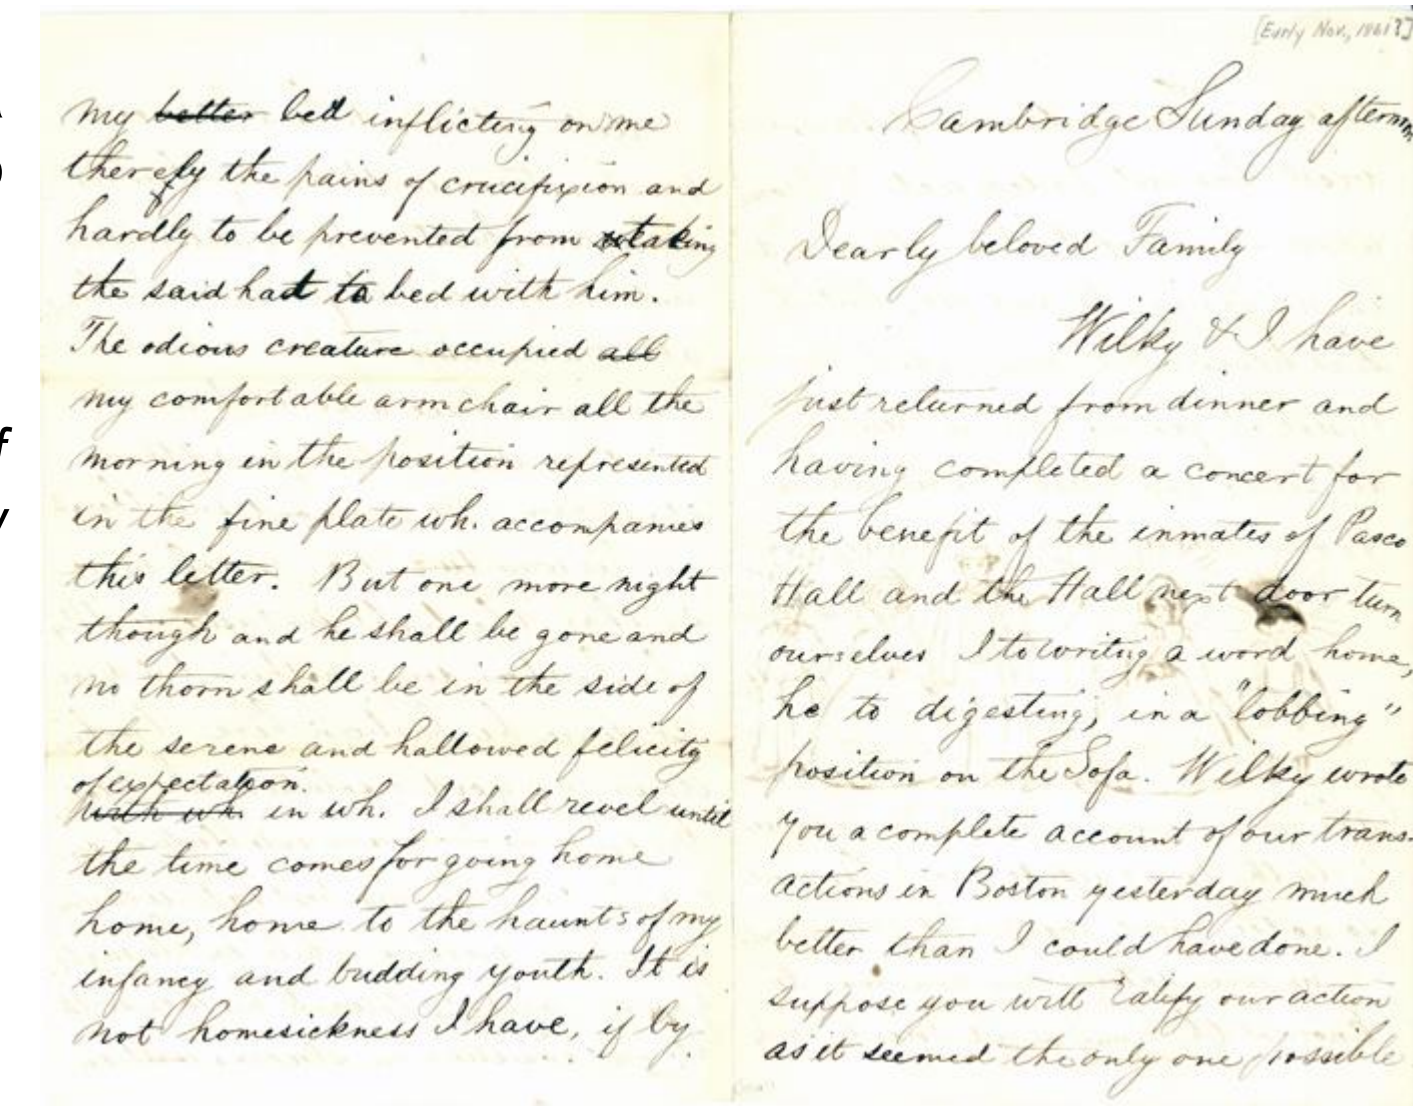 my better bed inflicting on me
thereby the pains of crucifixion and
hardly to be prevented from taking
the said hat to bed with him.
The odious creature occupied all
my comfortable arm chair all the
morning in the position represented
in the fine plate wh. accompanies
this letter. But one more night
though and he shall be gone and
no thorn shall be in the side of
the serene and hallowed felicity
of expectation.
with wh. in wh. I shall revel until
the time comes for going home
home, home to the haunts of my
infancy and budding youth. It is
not homesickness I have, if by
[Early Nov., 1861?]
Cambridge Sunday afternoon
Dearly beloved Family
Wilky & I have
just returned from dinner and
having completed a concert for
the benefit of the inmates of Pasco
Hall and the Hall next door turn
ourselves I to writing a word home,
he to digesting, in a "lobbing"
position on the Sofa. Wilky wrote
you a complete account of our trans-
actions in Boston yesterday much
better than I could have done. I
suppose you will ratify our action
as it seemed the only one possible